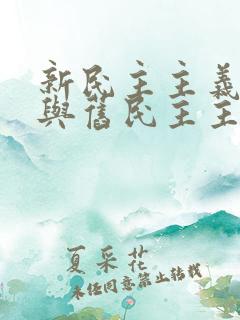 新民主主義
與舊民主主
夏采花
未经同意禁止转载